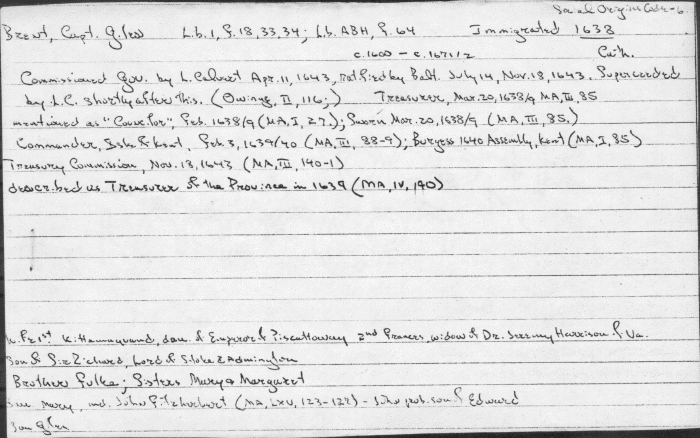 Social Origins Code - 6
Brent, Capt. Giles L.b. 1, f. 18, 33, 34; L.b. ABH, f. 64 Immigrated 1638
c.1600 - c.1671/2 Cath.
Commissioned Gov. by L. Calvert Apr. 11, 1643, ratified by Balt. July 14, Nov. 18, 1643. Superceded
by L.C. shortly after this. (Owings, II, 116,) Treasurer, Mar. 20, 1638/9 MA, III, 85
mentioned as "Councilor", Feb. 1638/9 (MA, I, 27.); Sworn Mar. 20, 1638/9 (MA, III, 85.)
Commander, Isle of Kent, Feb. 3, 1639/40 (MA, III, 88-9); Burgess 1640 Assembly, Kent (MA, I, 85)
Treasury Commission, Nov. 18, 1643 (MA, III, 140-1)
described as Treasurer of the Province in 1639 (MA, IV, 190)
Wife 1st Kittamaquund, dau. of Emperor of Piscattoway 2nd Frances, widow of Dr. Jeremy Harrison of Va.
Son of Sir Richard, Lord of Stoke & Admington
Brother Fulke; Sisters Mary & Margaret
Mary, md. John Fitzherbert (MA, LXV, 123-122) - John prob. son of Edward
Son Giles